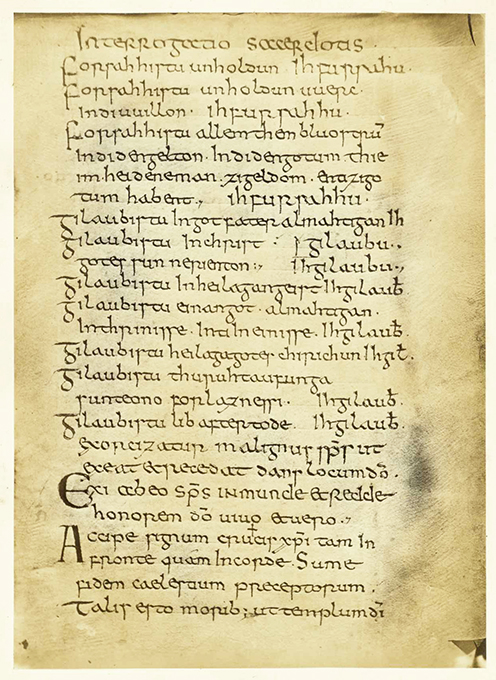 Interrogatio sacerdotis.
Forsahhistu unholdun. Ih fursahu.
Forsahhistu unholdun uuerc.
Indi uuillon. Ih fursahhu.
Forsahhistu allen then bluostrū
Indi den gelton. Indi den gotum thie
im heidene man. zi geldom. enti zi go
tum habent., ih fursahhu.
Gilaubistu In got fater almahtigan Ih
Gilaubistu In christ. Ih gilaubu.,
gotes sun nerienton:, Ih gilaubu.,
Gilaubistu In heilagan geist Ih gilaub̄
Gilaubistu einan got. almahtigan.
In thrinisse. Inti In einisse. Ih gilaub̄.
Gilaubistu heilaga gotes chirichun Ih gil̄.
Gilaubistu thuruh taufunga
sunteono forlaznessi. Ih gilaub̄.
Gilaubistu lib after tode. Ih gilaub̄.
Exorcizatur malignus sp̄s ut
exeat & recedat dans locum dō.
Exi ab eo sp̄s inmunde & redde
honorem dō uiuo & uero.,
Accipe signum crucis xp̄i tam In
fronte quam In corde. Sume
fidem caelestium preceptorum.
Talis esto morib; ut templum dī